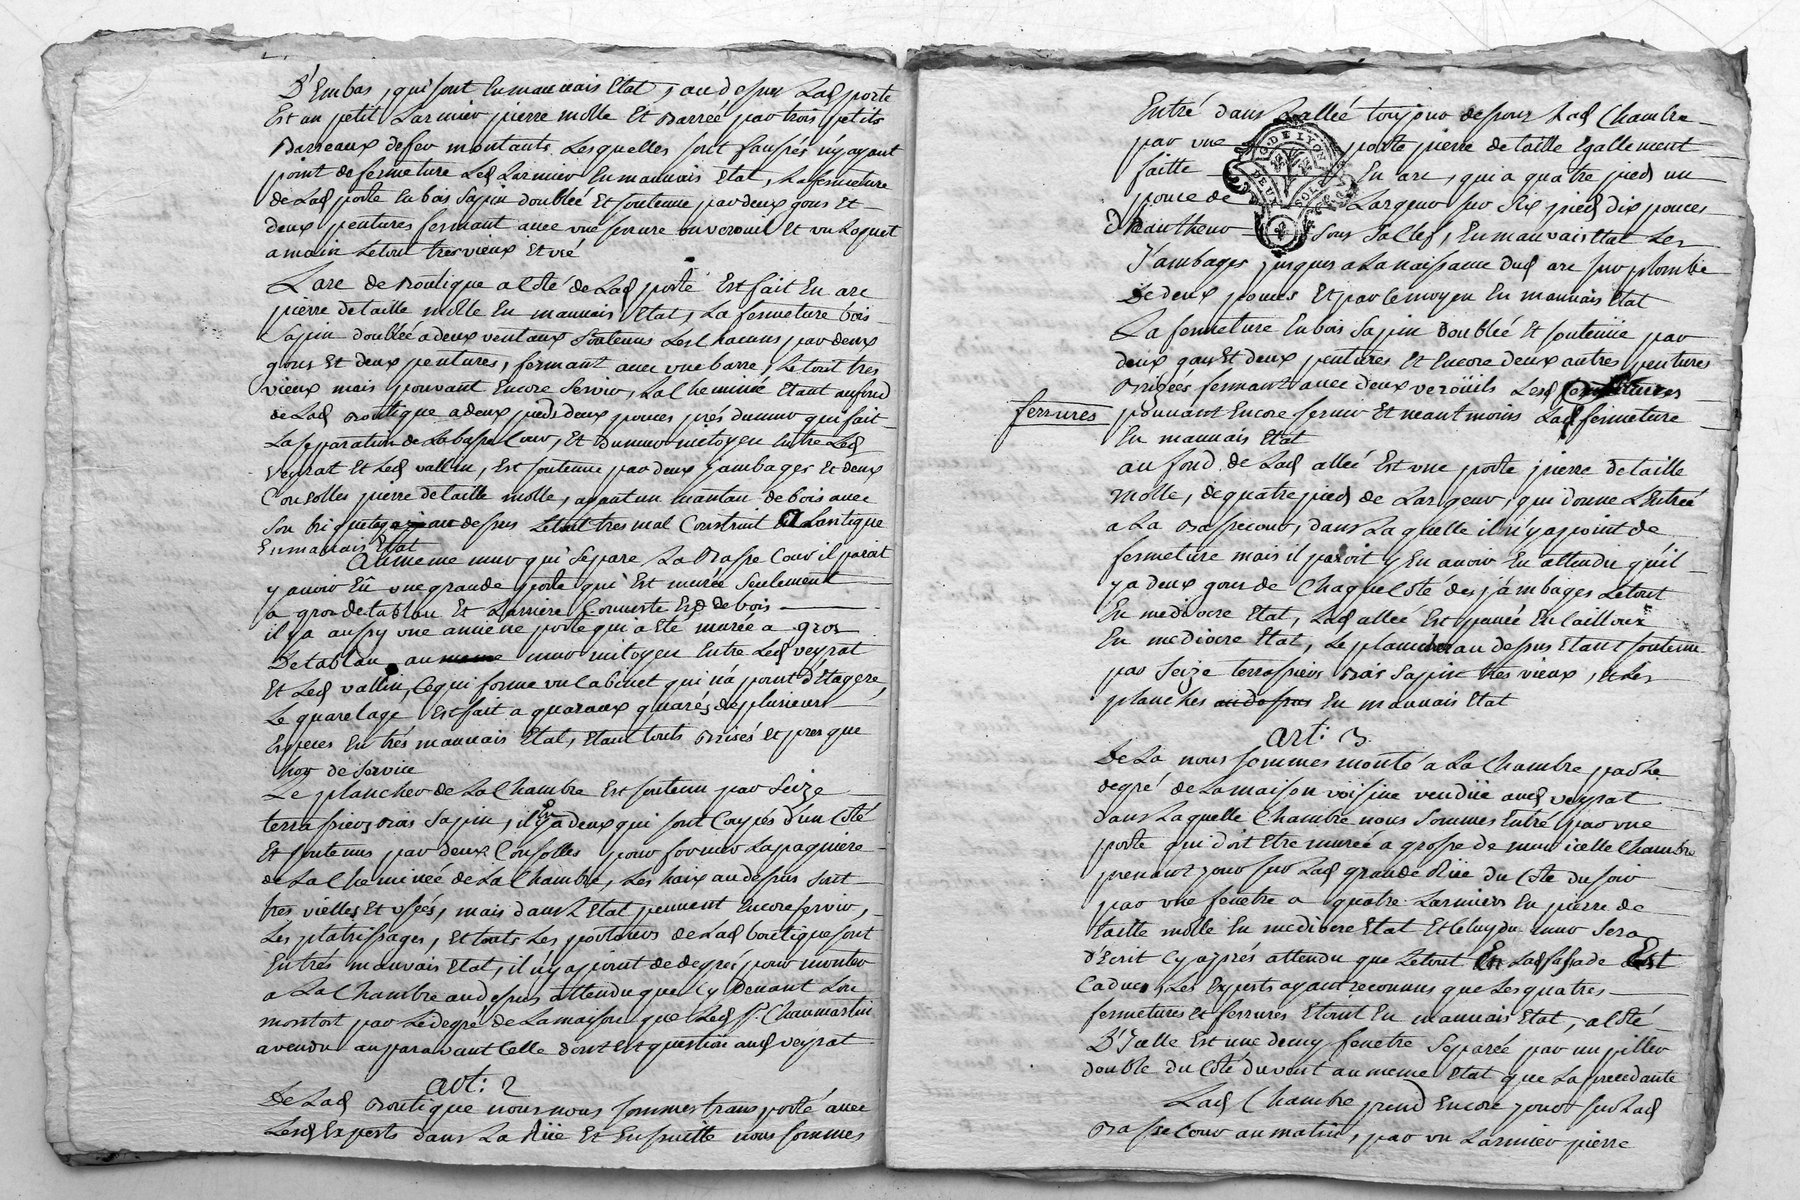 D'Embas, qui sont En mauvais Etat, au dessus Lad porte
Est un petit Larmier pierre molle Et Barrée par trois petits
Barreaux de fer montants Lesquelles sont faussés n'y ayant
point de fermeture Led Larmier En mauvais Etat, La fermeture
de Lad porte En bois Sapin doublée Et soutenue par deux gons Et
deux pentures fermant avec une serrure un verouil Et un Loquet
a main Le tout tres vieux Et usé
L'arc de Boutique a Coté de Lad porte Est fait En arc
pierre de taille molle En mauvais Etat, La fermeture bois
Sapin doublée a deux ventaux Soutenus Les Chacuns par deux
gons Et deux pentures, fermant avec une barre, Le tout tres
vieux mais pouvant Encore Servir, La Cheminée Etant au fond
de Lad Boutique a deux pieds deux pouces prés du mur qui fait
La Separation de La basse Cour, Et du mur mitoyen Entre Led
Veyrat Et Led vallin, Est soutenue par deux jambages Et deux
Consolles pierre de taille molle, ayant un manteau de bois avec
Son briquetage au dessus Le tout tres mal Construit a Lantique
En mauvais Etat
Au meme mur qui Separe La Basse Cour il paroit
y avoir Eû une grande porte qui Est murée Seulement
a gros de tablau Et Larriere Couverte Est de bois
il y a aussy une ancienne porte qui a Eté murée a gros
De tablau au meme mur mitoyen Entre Led veyrat
Et Led vallin, Ce qui forme un Cabinet qui n'a point d'Etagere,
Le quarelage Est fait a quaraux quarés de plusieurs
Especes En trés mauvais Etat, Etant touts Brisés Et presque
hors de Service
Le plancher de La Chambre Est soutenu par Seize
terrassiers Bois Sapin, il y En a deux qui sont Coupés d'un Coté
Et soutenus par deux Consolles pour former La pagniere
de La Cheminée de La Chambre, Les haix au dessus Sont
tres vielles Et Usées, mais dans L'Etat peuvent Encore servir,
Les platrissages, Et touts Les poutours de Lad boutique sont
En trés mauvais Etat, il n'y a point de degré pour monter
a La Chambre au dessus attendu que Cy devant Lon
montoit par Le degré de La maison que Led Sr. Chaumartin
a vendu auparavant Celle dont Est question aud veyrat
art: 2
De Lad Boutique nous nous sommes transporté avec
Lesd Experts dans La Rüe Et Ensuitte nous sommes
Entré dans L'allée toujour dessous Lad Chambre
par une porte pierre de taille Egallement
faitte En arc, qui a quatre pieds un
pouce de Largeur sur Six pieds dix pouces
D'hautheur Sous La Clef, En mauvais Etat Les
J'ambages jusques a La naissance dud arc sur plombé
De deux pouces Et par Ce moyen En mauvais Etat
La fermeture En bois Sapin Doublée Et soutenüe par
deux gons Et deux pentures Et Encore deux autres pentures
Brisées fermant avec deux verouils Lesd
ferrures pouvant Encore servir Et neantmoins Lad fermeture
En mauvais Etat
au fond de Lad allée Est une porte pierre de taille
Molle, de quatre pieds de Largeur, qui donne L'Entrée
a La Basse cour, dans Laquelle il n'y a point de
fermeture mais il paroit y En avoir Eu attendu qu'il
y a deux gons de Chaque Coté des j'ambages Le tout
En mediocre Etat, Lad allée Est pavée En Cailloux
En mediocre Etat, Le plancher au dessus Etant soutenu
par Seize terrassiers Bois Sapin tres vieux, Et Les
planches au dessus En mauvais Etat
art: 3
De La nous sommes monté a La Chambre par Le
degré de La maison voisine vendüe aud veyrat
dans Laquelle Chambre nous Sommes Entré par une
porte qui doit Etre murée a grosse de mur icelle Chambre
prenant jour sur Lad grande Rüe du Coté du soir
par une fenetre a quatre Larmiers En pierre de
taille molle En mediocre Etat Et Celuy du mur Sera
d'Ecrit Cy après attendu que Le tout En Lad fasade Est
Caduc, Les Experts ayant reconnus que Les quatres
fermetures Et ferrures Etoient En mauvais Etat, a Coté
D'Icelle Est une demy fenetre Separée par un pillier
double du Coté du vent au meme Etat que La precedante
Lad Chambre prend Encore jour sur Lad
Basse Cour au matin, par un Larmier pierre